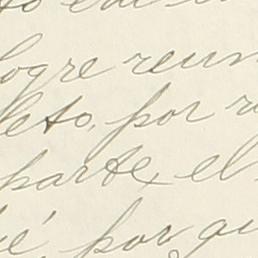 logre reun
leto, por r
parte, el
é, por qu